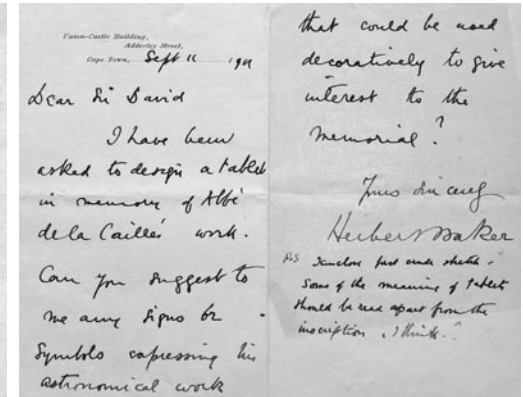 Union-Castle Building,
Adderley Street,
Cape Town, Sept 11 1911
Dear Sir David
I have been
asked to design a tablet
in memory of Abbé
de la Caille's work.
Can you suggest to
me any signs or
symbols expressing his
astronomical work
that could be used
decoratively to give
interest to the
memorial?
Yours sincerely
Herbert Baker
PS I enclose first crude sketch.
Some of the meaning of tablet
should be read apart from the
inscription, I think.?